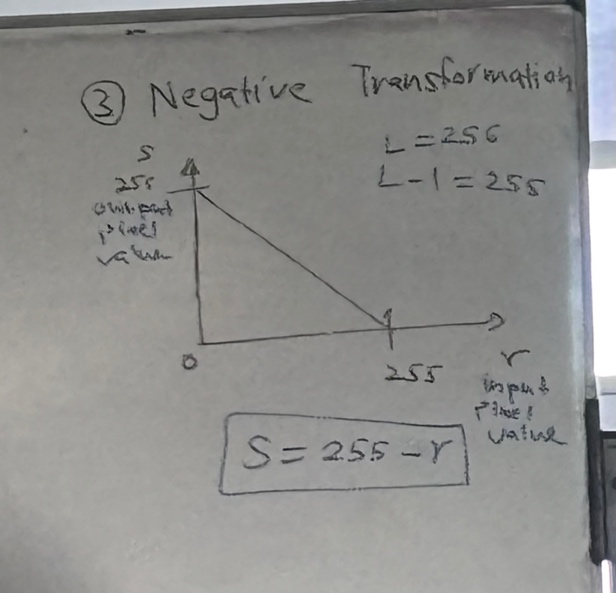 ③ Negative Transformation
L = 256
L - 1 = 255
S
255
output
pixel
value
0
255
r
input
pixel
value
S = 255 - r